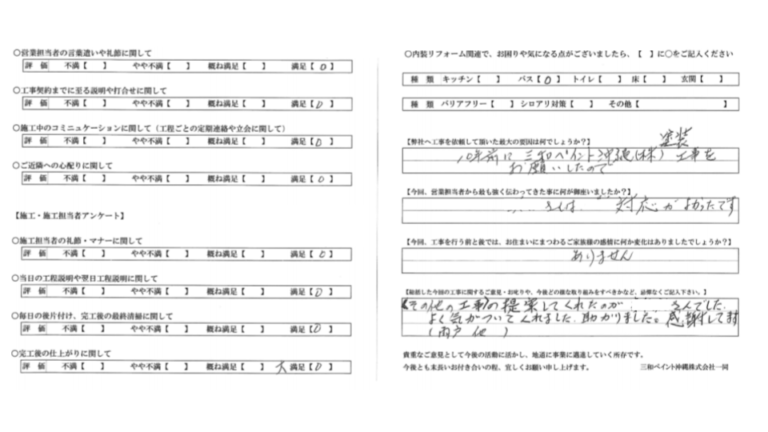 ○営業担当者の言葉遣いや礼節に関して
評 価 不満【 】 やや不満【 】 概ね満足【 】 満足【 O 】
○工事契約までに至る説明や打合せに関して
評 価 不満【 】 やや不満【 】 概ね満足【 】 満足【 O 】
○施工中のコミニュケーションに関して(工程ごとの定期連絡や立会に関して)
評 価 不満【 】 やや不満【 】 概ね満足【 】 満足【 O 】
○ご近隣への心配りに関して
評 価 不満【 】 やや不満【 】 概ね満足【 】 満足【 O 】
【施工・施工担当者アンケート】
○施工担当者の礼節・マナーに関して
評 価 不満【 】 やや不満【 】 概ね満足【 】 満足【 O 】
○当日の工程説明や翌日工程説明に関して
評 価 不満【 】 やや不満【 】 概ね満足【 】 満足【 O 】
○毎日の後片付け、完工後の最終清掃に関して
評 価 不満【 】 やや不満【 】 概ね満足【 】 満足【 O 】
○完工後の仕上がりに関して
評 価 不満【 】 やや不満【 】 概ね満足【 】 大満足【 O 】
○内装リフォーム関連で、お困りや気になる点がございましたら、【 】に○をご記入ください
種 類 キッチン【 】 バス【 O 】 トイレ【 】 床【 】 玄関【 】
種 類 バリアフリー【 】 シロアリ対策【 】 その他【 】
【弊社へ工事を依頼して頂いた最大の要因は何でしょうか?】
塗装
10年前に 三和ペイント沖縄(株) 工事を
お願いしたので
【今回、営業担当者から最も強く伝わってきた事に何が御座いましたか?】
さんは 対応がよかったです
【今回、工事を行う前と後では、お住まいにまつわるご家族様の感情に何か変化はありましたでしょうか?】
ありません
【総括した今回の工事に関するご意見・お叱りや、今後どの様な取り組みをすべきかなど、忌憚なくご記入下さい。】
その他の工事の提案してくれたのが さんでした
よく気がついてくれました 助かりました。感謝してます
(雨戸 他 )
貴重なご意見として今後の活動に活かし、地道に事業に邁進していく所存です。
今後とも末長いお付き合いの程、宜しくお願い申し上げます。 三和ペイント沖縄株式会社一同